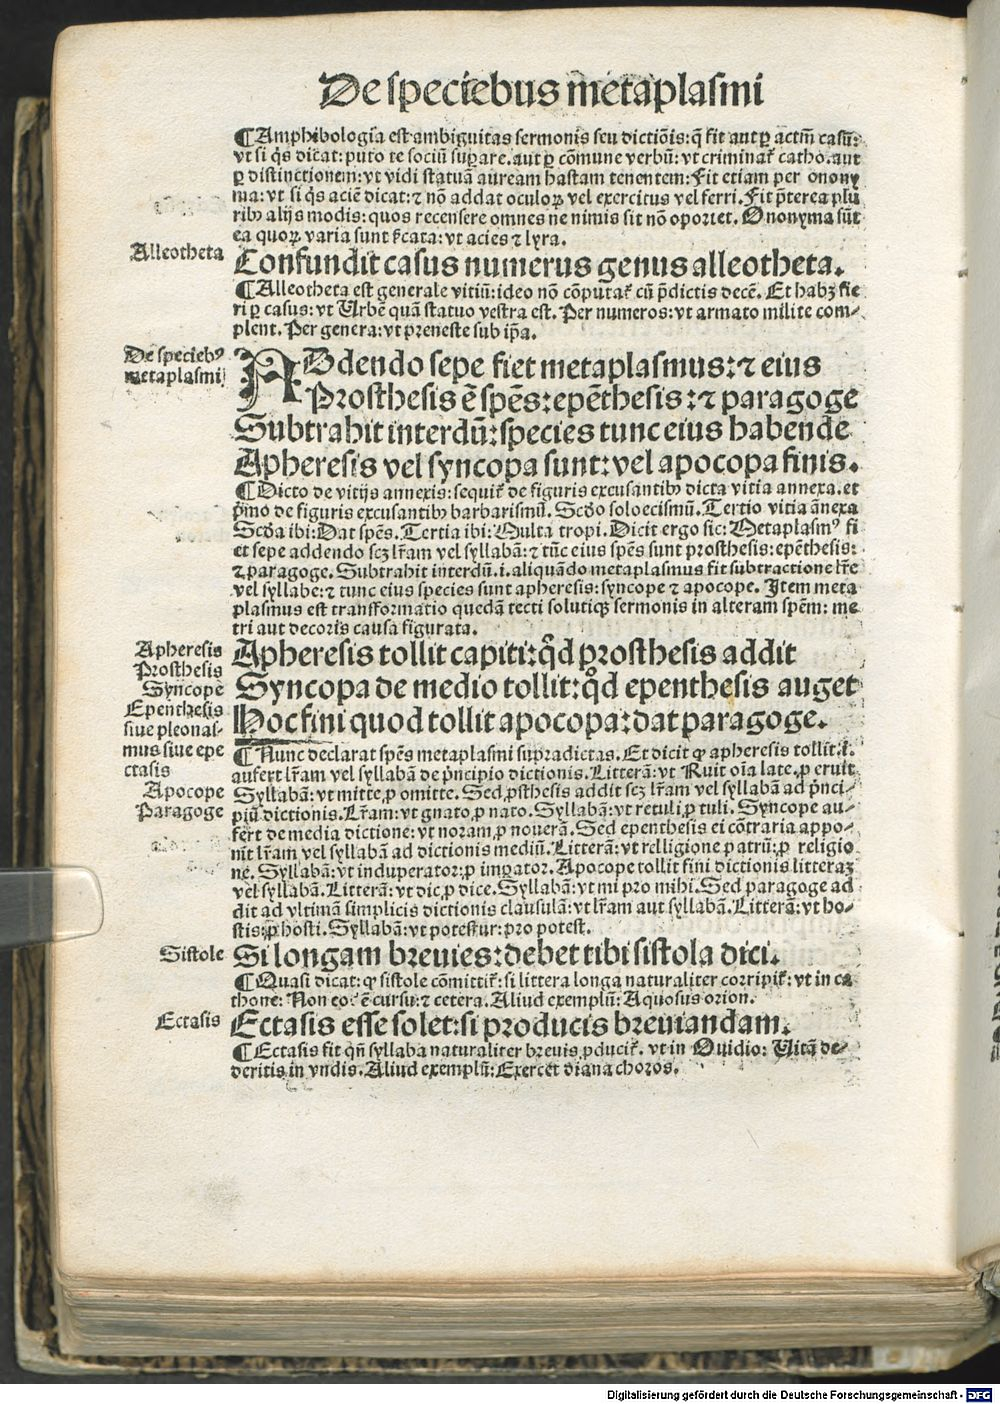 De speciebus metaplasmi
¶Amphibologia est ambiguitas sermonis seu dictiōis: q̄ fit aut ꝑ actm̄ casū:
vt si q̄s dicat: puto te sociū suꝑare. aut ꝑ cōmune verbū: vt criminat᷑ catho. aut
ꝑ distinctionem: vt vidi statuā auream hastam tenentem: Fit etiam per onony
ma: vt si q̄s aciē dicat: ⁊ nō addat oculoꝝ vel exercitus vel ferri. Fit p̄terea plu
ribꝰ alijs modis: quos recensere omnes ne nimis sit nō oportet. Ononyma sūt
ea quoꝝ varia sunt s̄cata: vt acies ⁊ lyra.
Alleotheta
Confundit casus numerus genus alleotheta.
¶Alleotheta est generale vitiū: ideo nō cōputat᷑ cū p̄dictis decē. Et habꝫ fie
ri ꝑ casus: vt Urbē quā statuo vestra est. Per numeros: vt armato milite com-
plent. Per genera: vt preneste sub ip̄a.
De speciebꝰ
metaplasmi
ADdendo sepe fiet metaplasmus: ⁊ eius
Prosthesis ē spēs: epēthesis: ⁊ paragoge
Subtrahit interdū: species tunc eius habende
Apheresis vel syncopa sunt: vel apocopa finis.
¶Dicto de vitijs annexis: sequit᷑ de figuris excusantibꝰ dicta vitia annexa. et
pͥmo de figuris excusantibꝰ barbarismū. Scd̄o soloecismū. Tertio vitia ānexa
Scd̄a ibi: Dat spēs. Tertia ibi: Multa tropi. Dicit ergo sic: Metaplasmꝰ fi
et sepe addendo scꝫ lr̄am vel syllabā: ⁊ tūc eius spēs sunt prosthesis: epēthesis:
⁊ paragoge. Subtrahit interdū .i. aliquādo metaplasmus fit subtractione lr̄e
vel syllabe: ⁊ tunc eius species sunt apheresis: syncope ⁊ apocope. Item meta
plasmus est transformatio quedā recti solutiqꝫ sermonis in alteram spēm: me
tri aut decoris causa figurata.
Apheresis
Prosthesis
Syncope
Epenthesis
siue pleonas-
mus siue epe
ctasis
Apocope
Paragoge
Apheresis tollit capiti: qd̄ prosthesis addit
Syncopa de medio tollit: qd̄ epenthesis auget
Hoc fini quod tollit apocopa: dat paragoge.
¶Nunc declarat spēs metaplasmi supradictas. Et dicit ꝙ apheresis tollit .i.
aufert lr̄am vel syllabā de pͥncipio dictionis. Litterā: vt Ruit oīa late. ꝓ eruit
Syllabā: vt mitte, ꝓ omitte. Sed ꝓsthesis addit scꝫ lr̄am vel syllabā ad pͥnci-
piū dictionis. Lr̄am: vt gnato, ꝓ nato. Syllabā: vt retuli, ꝓ tuli. Syncope au-
fert de media dictione: vt noram, ꝓ nouerā. Sed epenthesis ei cōtraria appo-
nit lr̄am vel syllabā ad dictionis mediū. Litterā: vt relligione patrū: ꝓ religio
ne. Syllabā: vt induperator: ꝓ imꝑator. Apocope tollit fini dictionis litteraꝫ
vel syllabā. Litterā: vt dic, ꝓ dice. Syllabā: vt mi pro mihi. Sed paragoge ad
dit ad vltimā simplicis dictionis clausulā: vt lr̄am aut syllabā. Litterā: vt ho-
stis: ꝓ hosti. Syllabā: vt potestur: pro potest.
Sistole
Si longam breuies: debet tibi sistola dici.
¶Quasi dicat: ꝙ sistole cōmittit᷑: si littera longa naturaliter corripit᷑: vt in ca
thone: Non eodē cursu: ⁊ cetera. Aliud exemplū: Aquosus orion.
Ectasis
Ectasis esse solet: si producis breuiandam.
¶Ectasis fit qn̄ syllaba naturaliter breuis ꝓducit᷑. vt in Ouidio: Uitā de-
deritis in vndis. Aliud exemplū: Exercet diana choros.
Digitalisierung gefördert durch die Deutsche Forschungsgemeinschaft - DFG